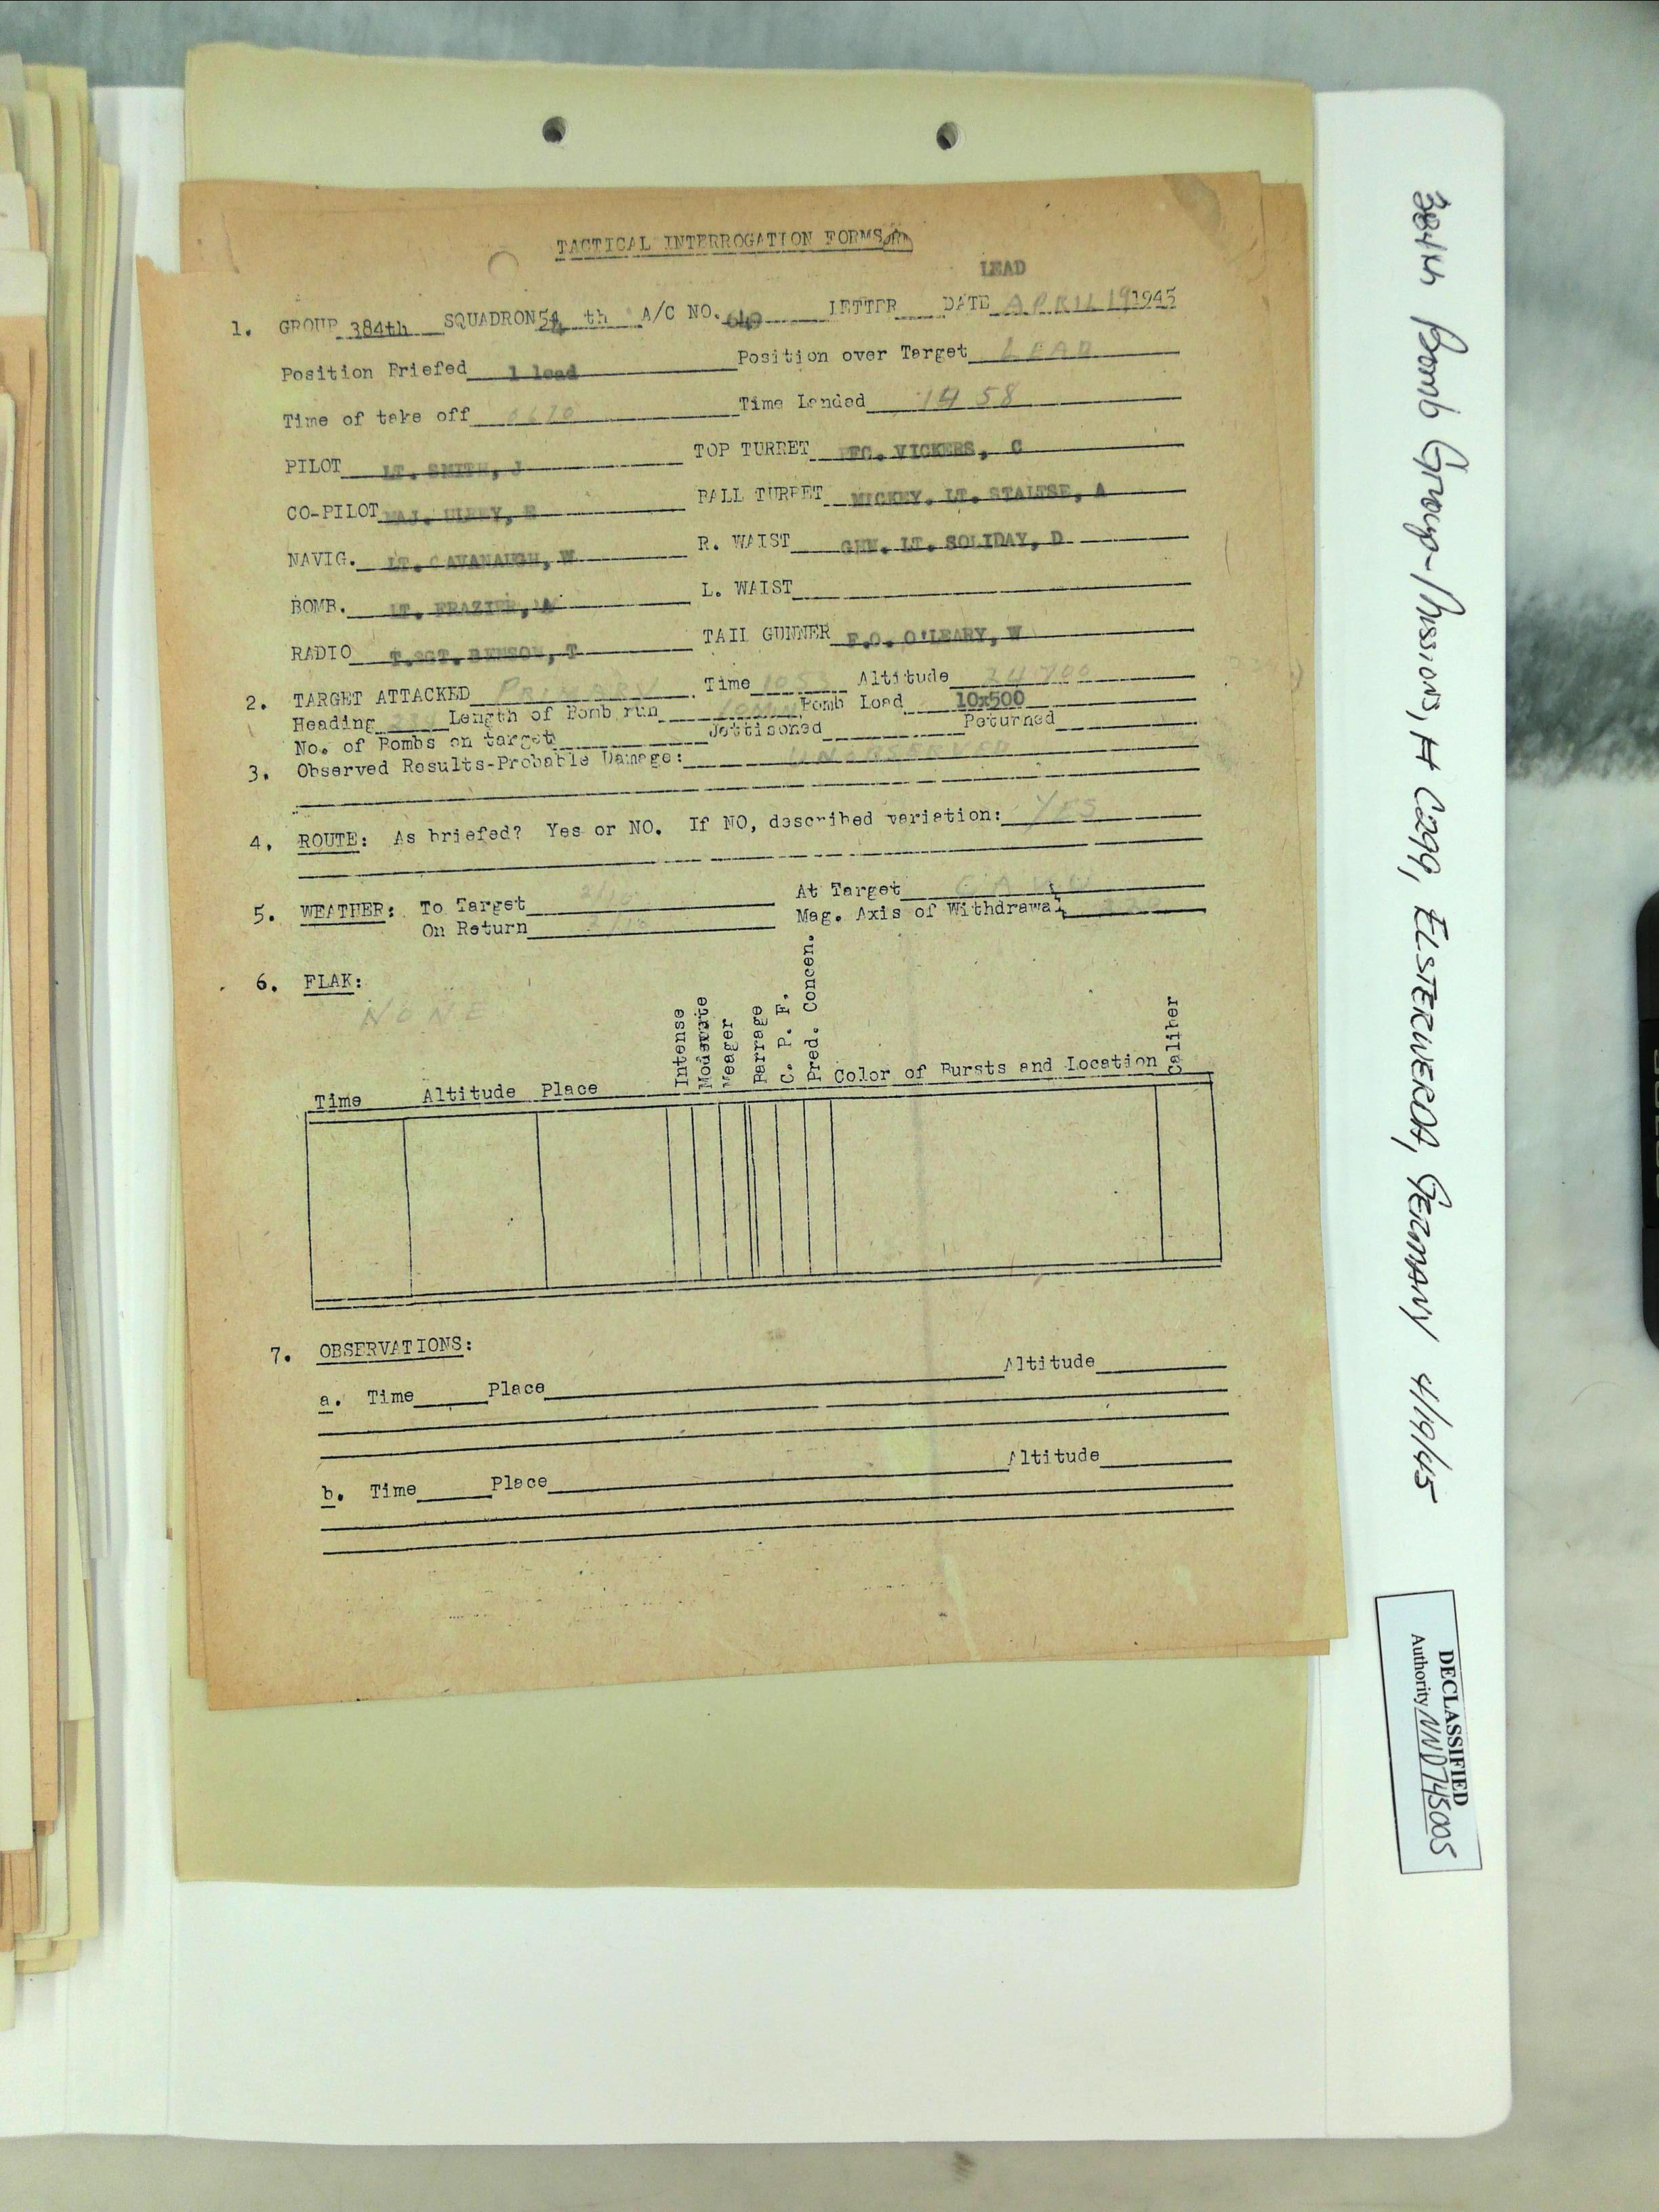 TACTICAL INTERROGATION FORMS
LEAD
1. GROUP 384th SQUADRON th A/C NO. LETTER DATE APRIL 19, 1945
Position Briefed 1 lead Position over Target LEAD
Time of take off Time Landed 1458
PILOT LT. SMITH, J TOP TURRET PFC. VICKERS, C
CO-PILOT MAJ. ULREY, E BALL TURRET MICKEY. LT. STALESE, A
NAVIG. LT. CAVANAUGH, W R. WAIST GEN. LT. SOLIDAY, D
BOMB. LT. FRAZIER, L. WAIST
RADIO T.SGT. BENSON, T TAIL GUNNER F.O. O'LEARY, W
2. TARGET ATTACKED PRIMARY Time 1053 Altitude 24700
Heading Length of Bomb run 10 MIN Bomb Load 10x500
No. of Bombs on target Jettisoned Returned
3. Observed Results-Probable Damage: UNOBSERVED
4. ROUTE: As briefed? Yes or NO. If NO, described variation: YES
5. WEATHER: To Target 2/10 At Target CAVU
On Return 2/10 Mag. Axis of Withdrawal
6. FLAK:
NONE
Time Altitude Place Intense Moderate Meager Barrage C. P. F. Pred. Concen. Color of Bursts and Location Caliber
7. OBSERVATIONS:
a. Time Place Altitude
b. Time Place Altitude
384th Bomb Group-Mission, # C299, ELSTERWERDA, GERMANY 4/19/45
DECLASSIFIED
Authority NND745005